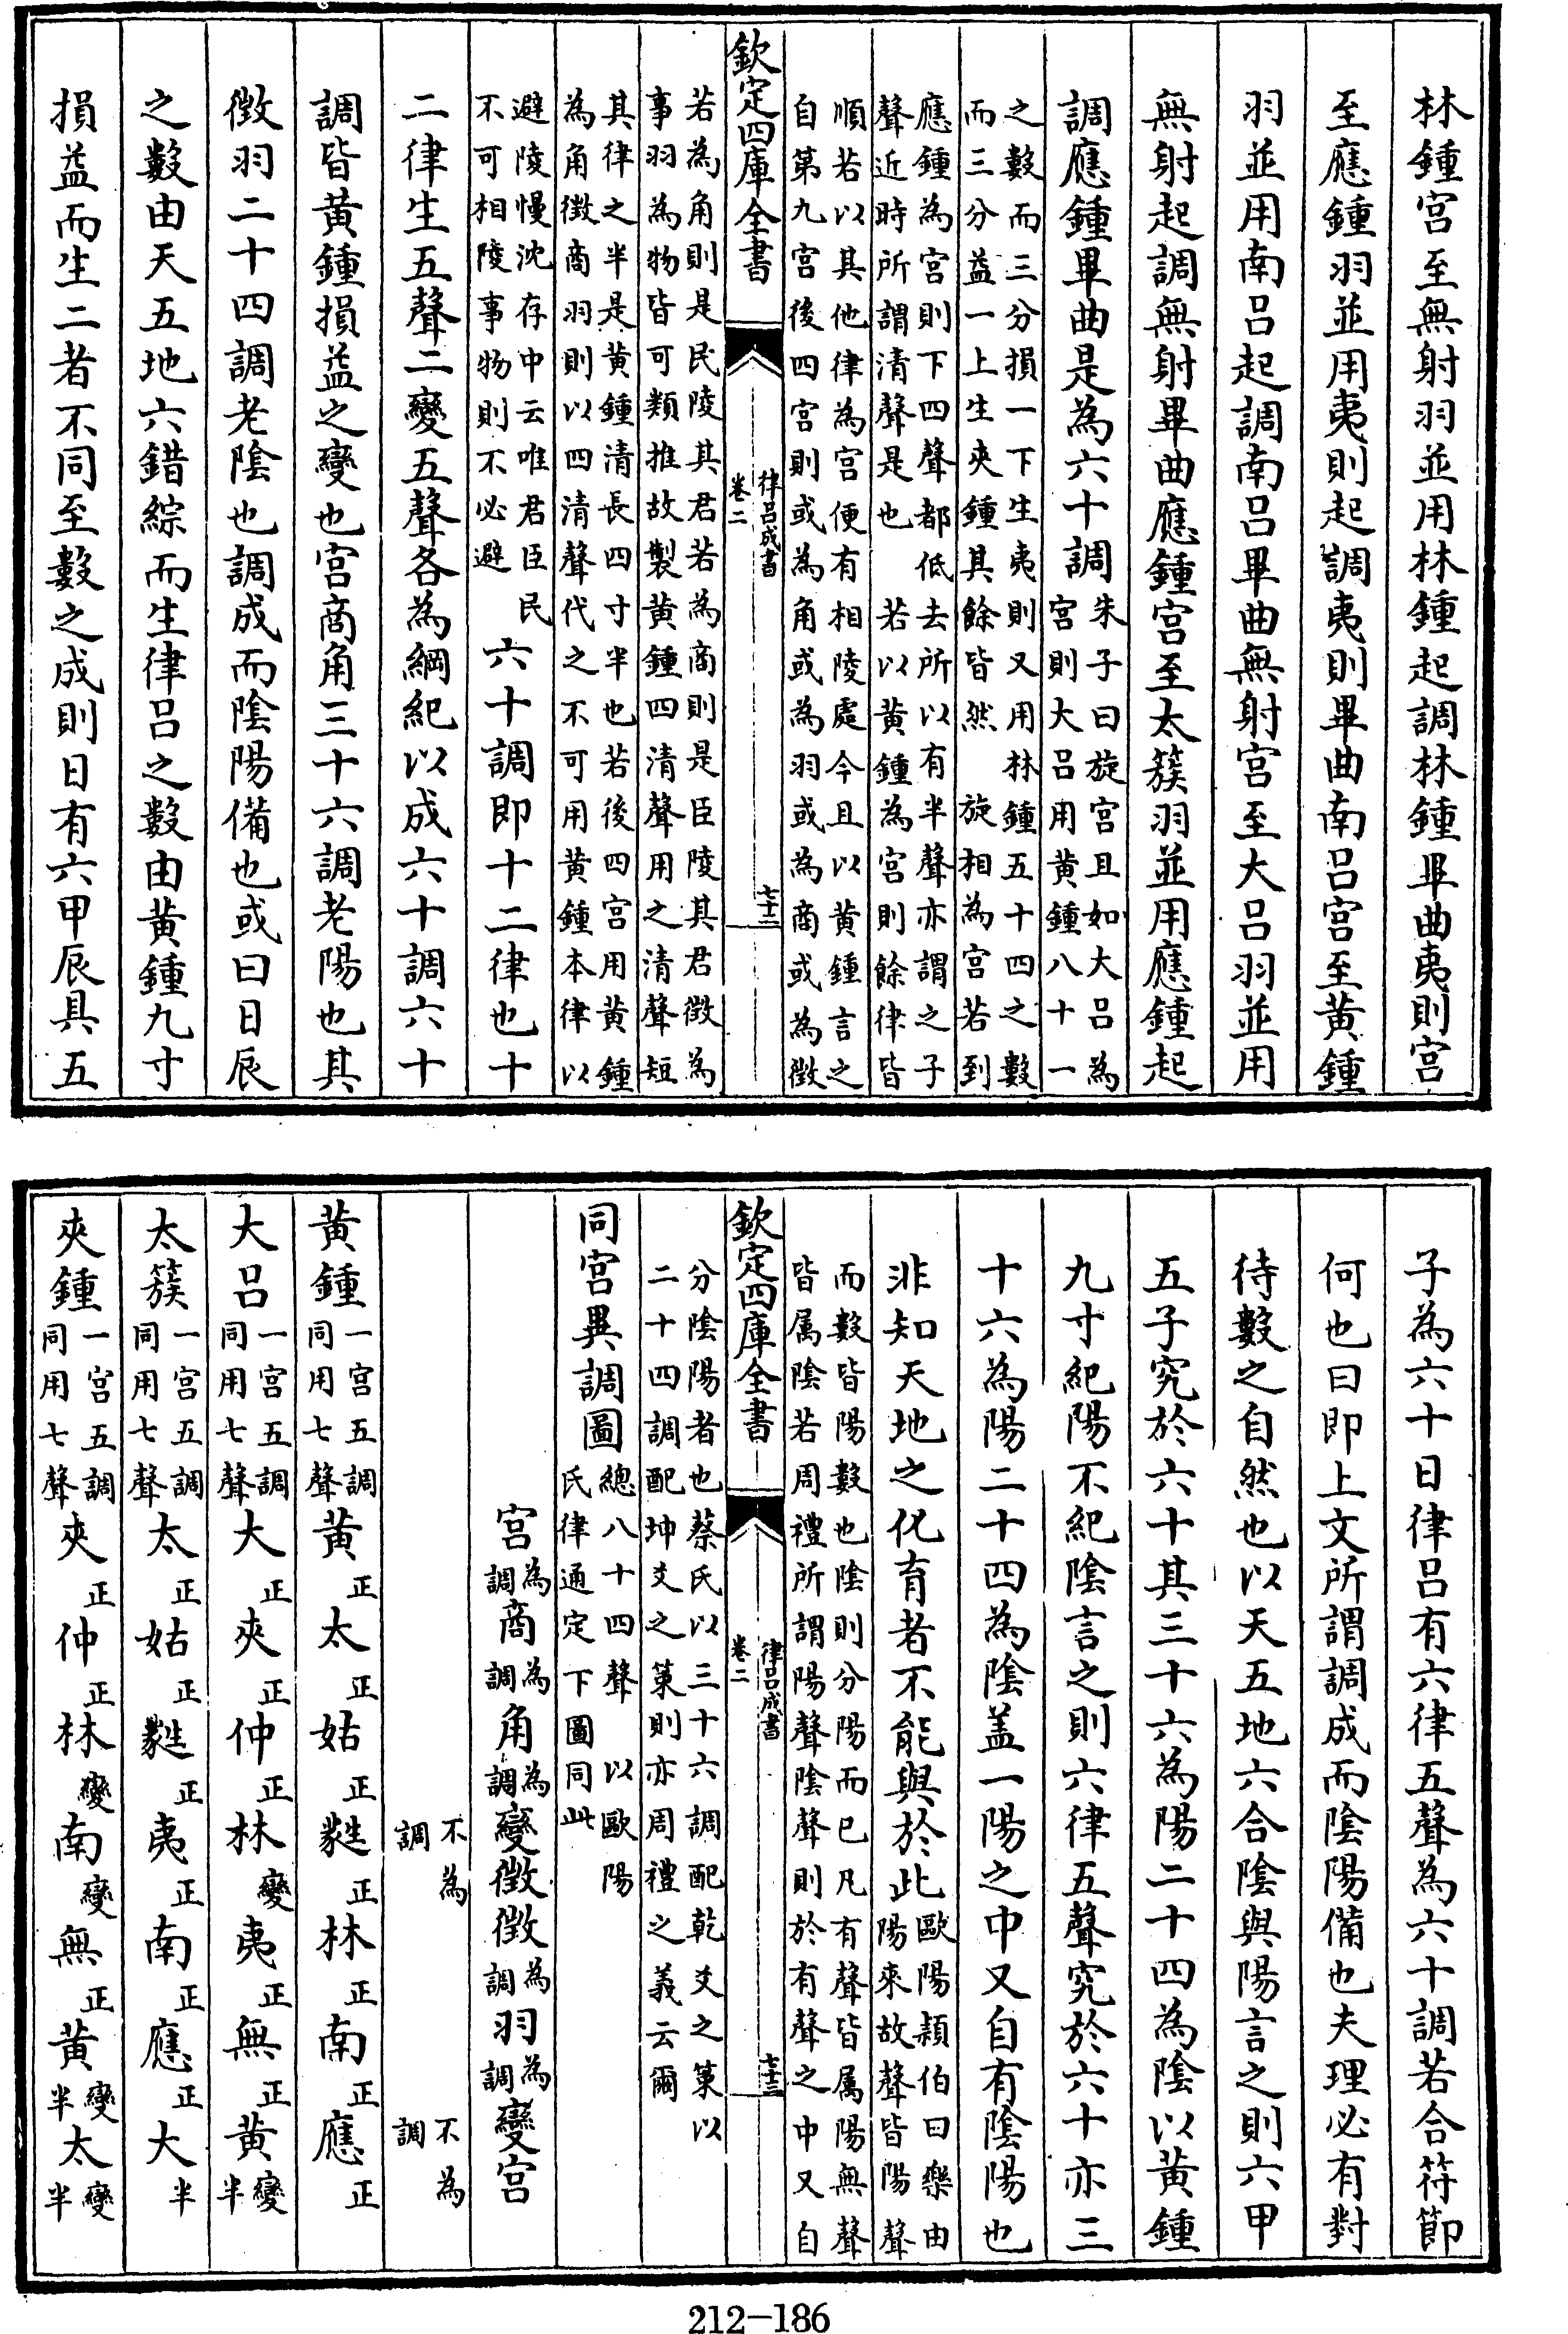 林鍾宫至無射羽並用林鍾起調林鍾畢曲夷則宫
至應鍾羽並用夷則起調夷則畢曲南呂宫至黃鍾
羽並用南呂起調南呂畢曲無射宫至大呂羽並用
無射起調無射畢曲應鍾宫至太簇羽並用應鍾起
調應鍾畢曲是為六十調
朱子曰旋宫且如大呂為
宫則大呂用黃鍾八十一
之數而三分損一下生夷則又用林鍾五十四之數
而三分益一上生夾鍾其餘皆然 旋相為宫若到
應鍾為宫則下四聲都低去所以有半聲亦謂之子
聲近時所謂清聲是也 若以黃鍾為宫則餘律皆
順若以其他律為宫便有相陵處今且以黃鍾言之
自第九宫後四宫則或為角或為羽或為商或為徵
欽定四庫全書
律呂成書
卷二
七十二
若為角則是民陵其君若為商則是臣陵其君徵為
事羽為物皆可類推故製黃鍾四清聲用之清聲短
其律之半是黃鍾清長四寸半也若後四宫用黃鍾
為角徵商羽則以四清聲代之不可用黃鍾本律以
避陵慢沈存中云唯君臣民
不可相陵事物則不必避
六十調即十二律也十
二律生五聲二變五聲各為綱紀以成六十調六十
調皆黃鍾損益之變也宫商角三十六調老陽也其
徵羽二十四調老陰也調成而陰陽備也或曰日辰
之數由天五地六錯綜而生律呂之數由黃鍾九寸
損益而生二者不同至數之成則日有六甲辰具五
子為六十日律呂有六律五聲為六十調若合符節
何也曰即上文所謂調成而陰陽備也夫理必有對
待數之自然也以天五地六合陰與陽言之則六甲
五子究於六十其三十六為陽二十四為陰以黃鍾
九寸紀陽不紀陰言之則六律五聲究於六十亦三
十六為陽二十四為陰盖一陽之中又自有陰陽也
非知天地之化育者不能與於此
歐陽頴伯曰樂由
陽來故聲皆陽聲
而數皆陽數也陰則分陽而已凡有聲皆属陽無聲
皆属陰若周禮所謂陽聲陰聲則於有聲之中又自
欽定四庫全書
律呂成書
卷二
七十三
分陰陽者也蔡氏以三十六調配乾爻之䇿以
二十四調配坤爻之䇿則亦周禮之義云爾
同宫異調圖
總八十四聲 以歐陽
氏律通定下圖同此
宫為調商為調角為調變徵徵為調羽為調變宫
不為調 不為調
黃鍾一宫五調同用七聲黃正太正姑正蕤正林正南正應正
大呂一宫五調同用七聲大正夾正仲正林變夷正無正黃變半
太簇一宫五調同用七聲太正姑正蕤正夷正南正應正大半
夾鍾一宫五調同用七聲夾正仲正林變南變無正黃變半太變半
212-186